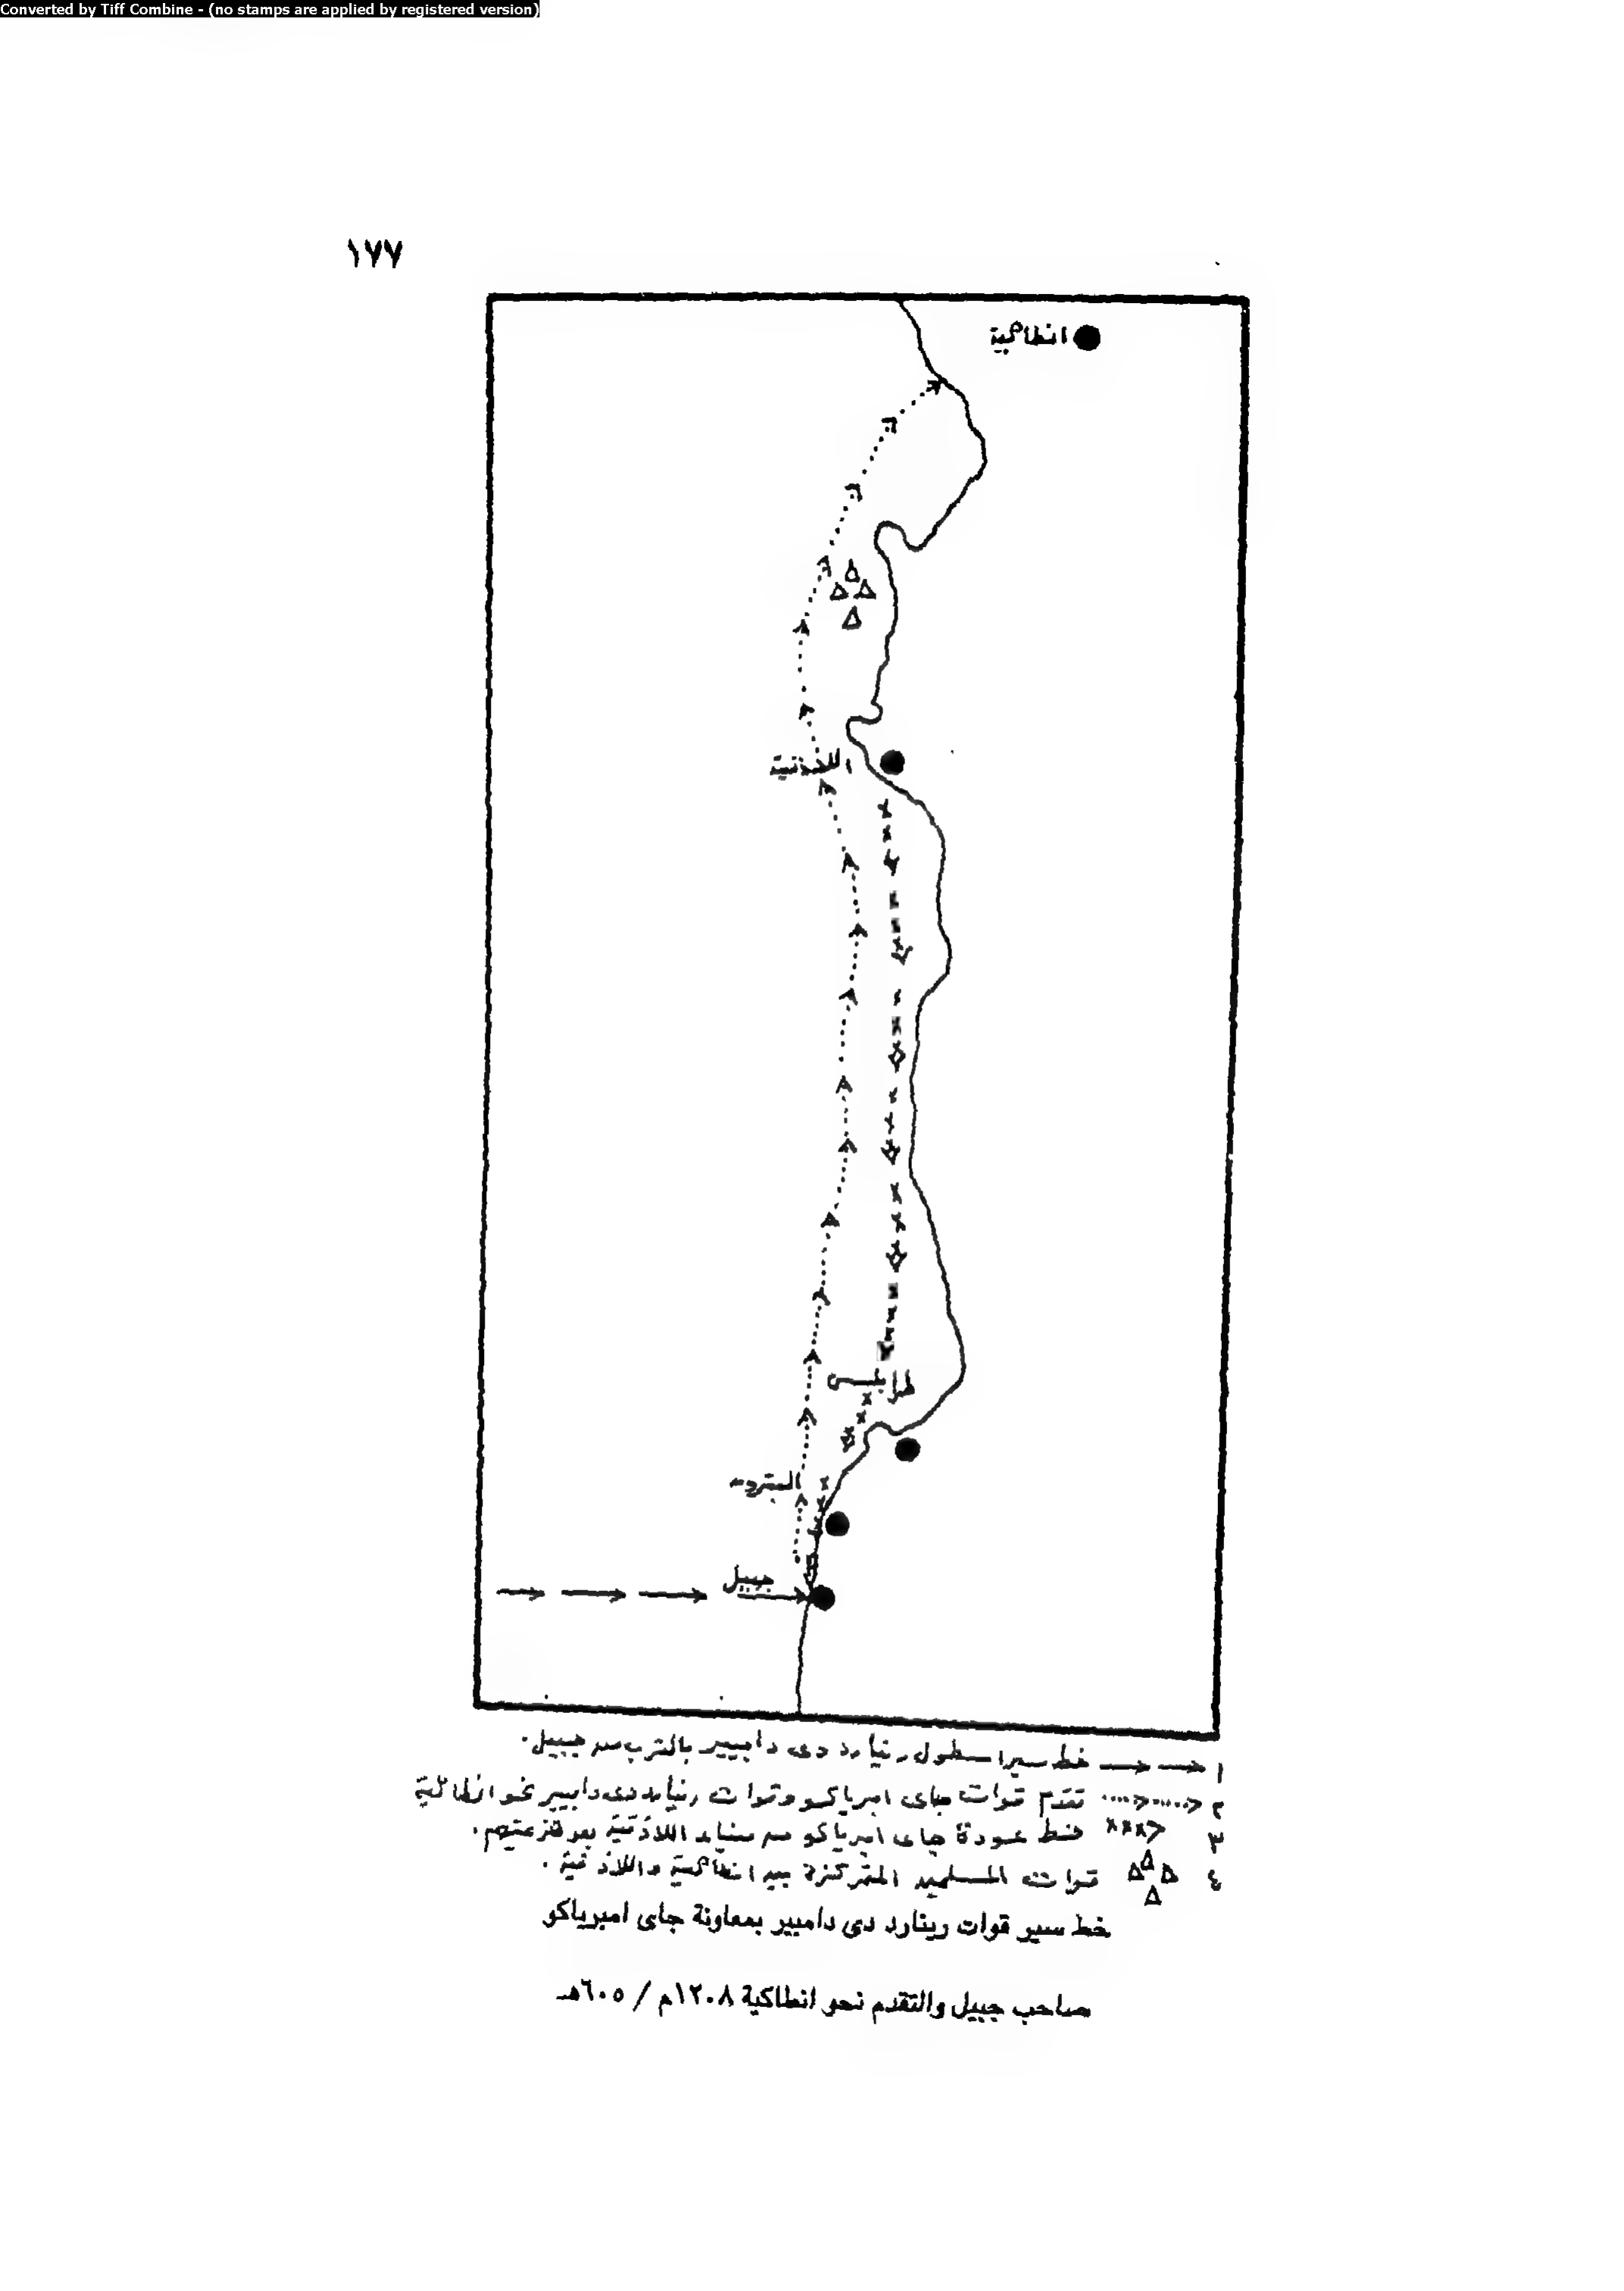 Converted by Tiff Combine - (no stamps are applied by registered version)
١٧٧
انطاكية
اللاذقية
طرابلس
البترون
جبيل
١ خط سير اسطول رينارد دى دامبيير بالقرب من جبيل.
٢ تقدم قوات جاى امبرياكو وقوات رينارد دى دامبيير نحو انطاكية
٣ خط عودة جاى امبرياكو من ميناء اللاذقية بعد هزيمتهم.
٤ قوات المسلمين المتمركزة بين انطاكية واللاذقية.
خط سير قوات رينارد دى دامبير بمعاونة جاى امبرياكو
صاحب جبيل والتقدم نحو انطاكية ١٢٠٨م / ٦٠٥هـ